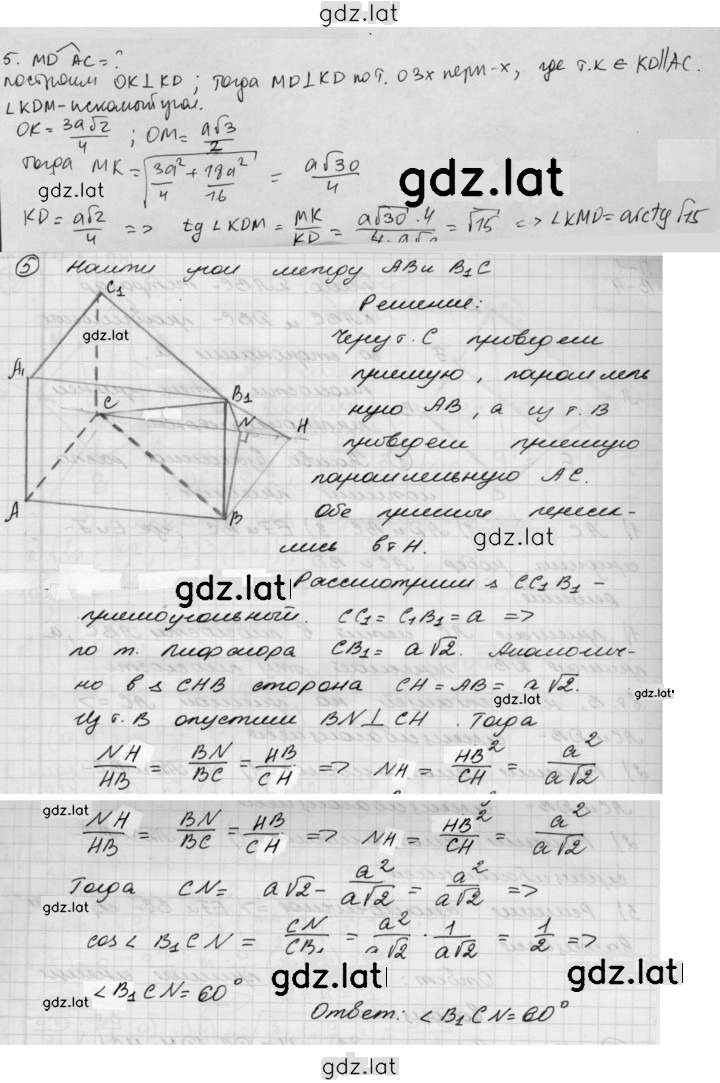 gdz.lat
5. MD^AC=?
построим OK⊥KD; тогда MD⊥KD по т. о 3х перп-х, где т.K ∈ KD∥AC.
∠KDM-искомый угол.
OK = 3a√2/4 ; OM = a√3/2
тогда MK = √(3a²/4 + 18a²/16) = a√30/4
gdz.lat
gdz.lat
KD = a√2/4 => tg ∠KDM = MK/KD = a√30·4/4·a√2 = √15 => ∠KMD = arctg √15
5 Найти угол между AB и B₁C
C₁
Решение:
gdz.lat
Через т. C проведем
A₁
прямую, параллель
B₁
C
N
H
ную AB, а из т. B
проведем прямую
параллельную AC.
A
B
Обе прямые пересек-
лись в т H.
gdz.lat
gdz.lat
Рассмотрим Δ CC₁B₁ -
прямоугольный. CC₁ = C₁B₁ = a =>
по т. Пифагора CB₁ = a√2. Аналогич-
но в Δ CHB сторона CH = AB = a√2.
gdz.lat
gdz.lat
Из т. B опустим BN⊥CH. Тогда
NH/HB = BN/BC = HB/CH => NH = HB²/CH = a²/a√2
gdz.lat
NH/HB = BN/BC = HB/CH => NH = HB²/CH = a²/a√2
Тогда CN = a√2 - a²/a√2 = a²/a√2 =>
gdz.lat
cos∠B₁CN = CN/CB₁ = a²/a√2 · 1/a√2 = 1/2 =>
gdz.lat
gdz.lat
gdz.lat
∠B₁CN = 60°
Ответ: ∠B₁CN = 60°
gdz.lat